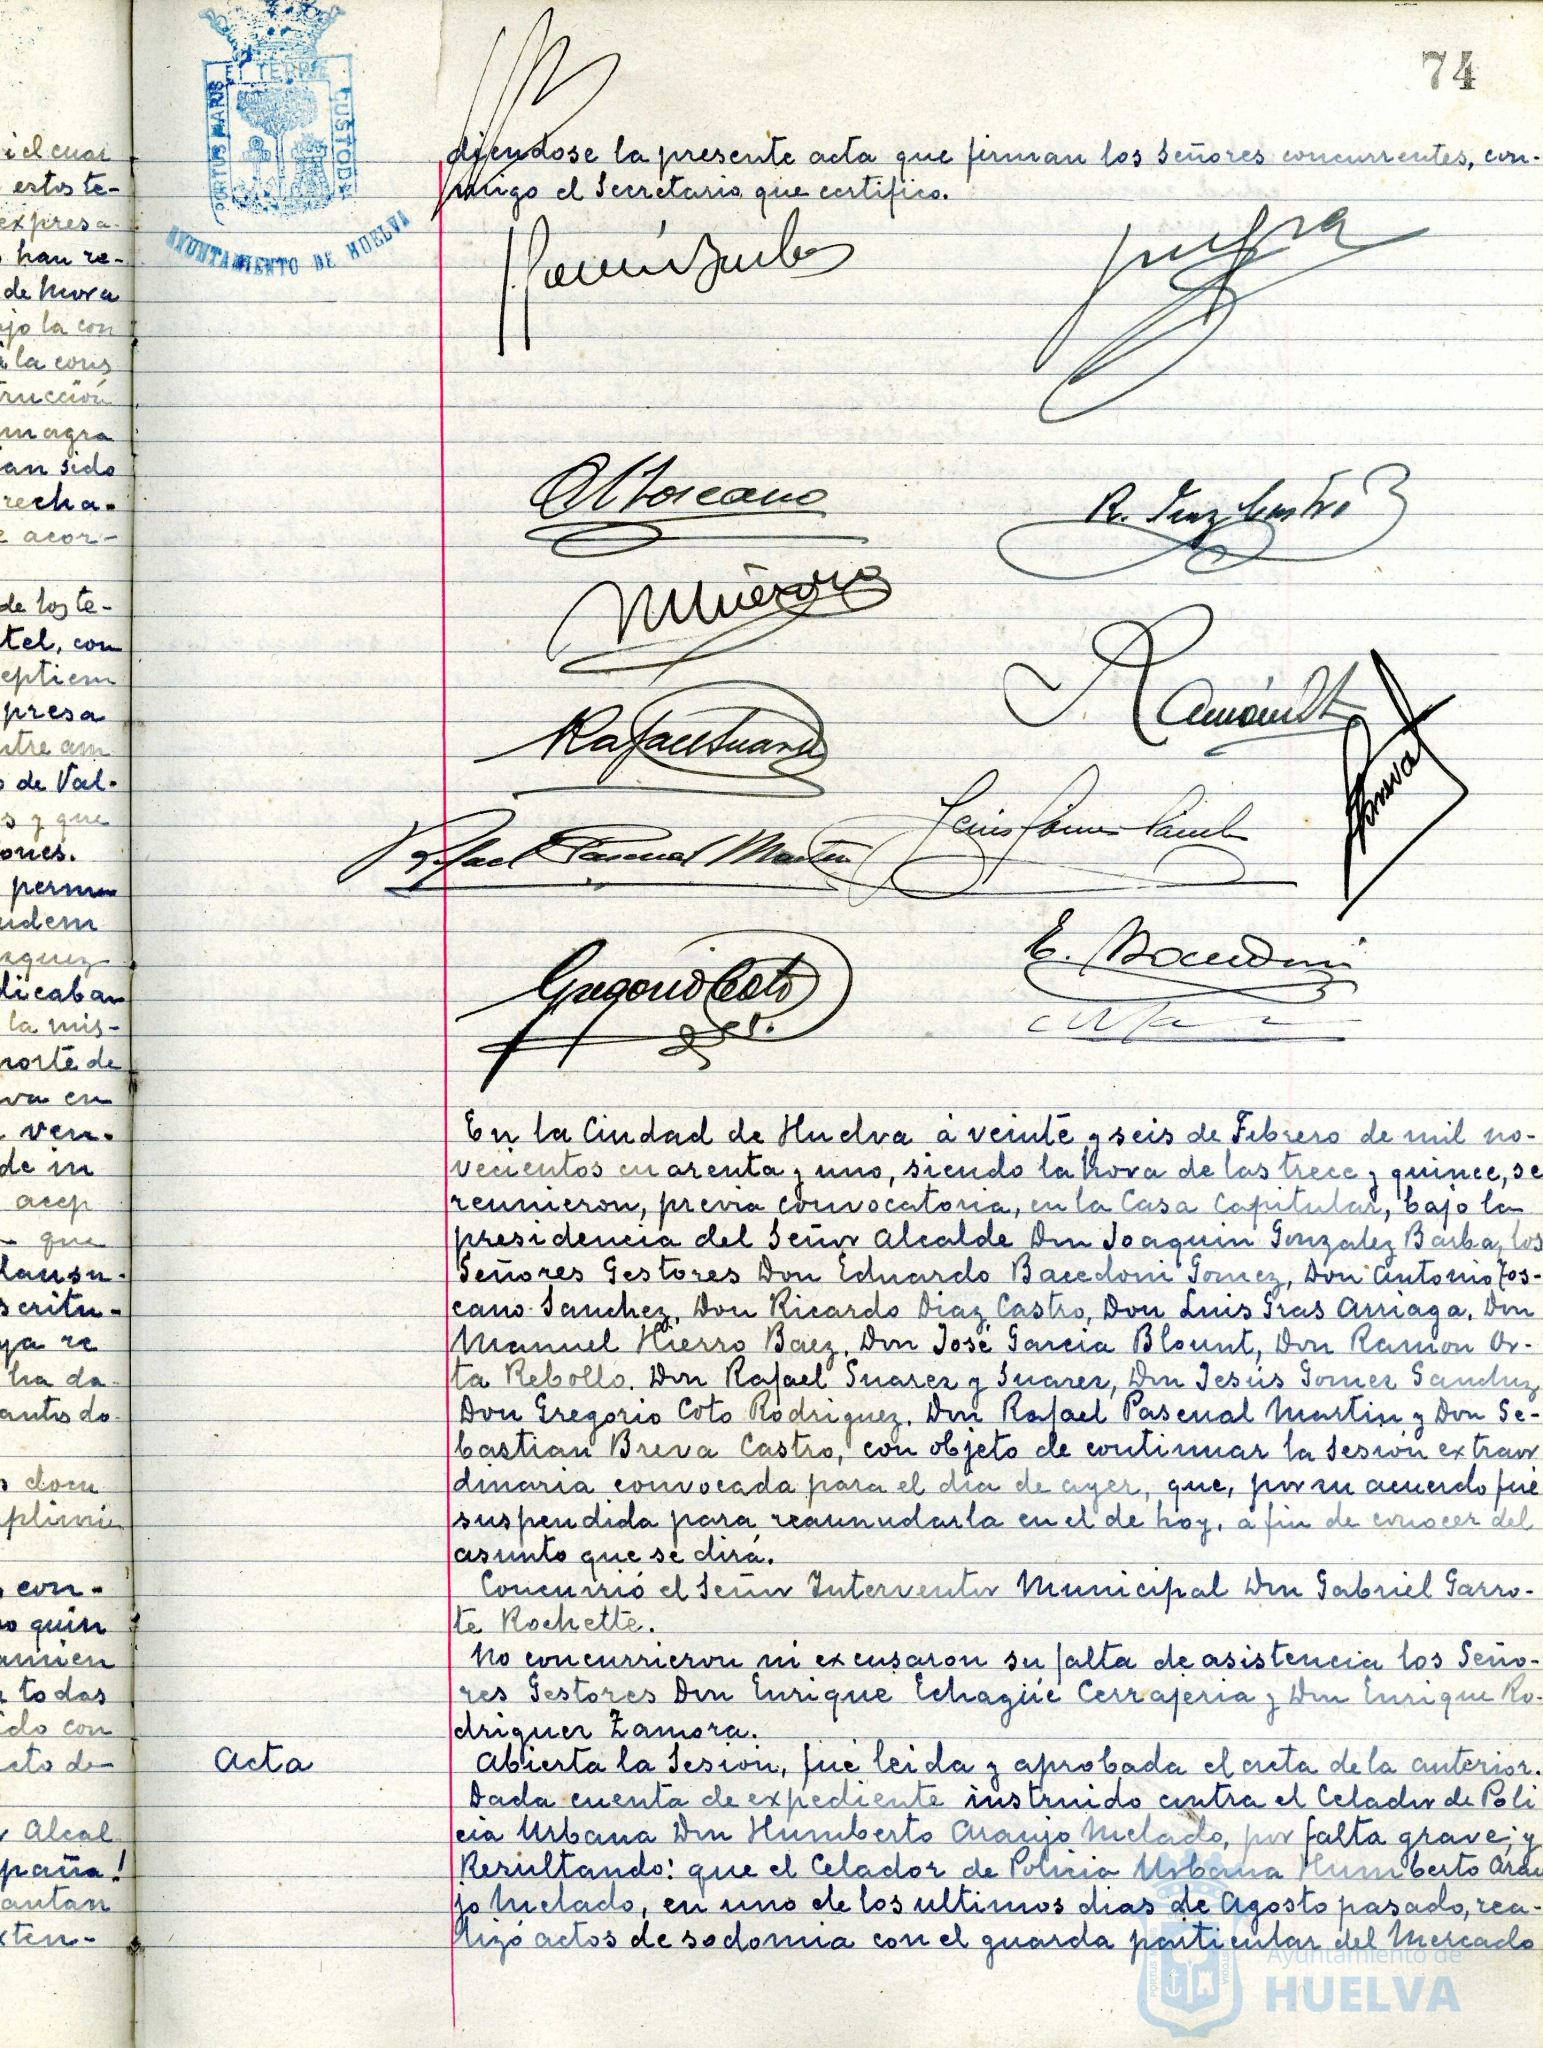 74
PORTUS MARIS ET TERRE CUSTODIA
AYUNTAMIENTO DE HUELVA
diendose la presente acta que firman los Señores concurrentes, con-
migo el Secretario que certifico.
A Toscano
R. Diaz Castro
M Hierro
Rafael Suarez
Ramón Orta
Breva
Rafael Pascual Martin
Jesus Gomez Sanchez
Gregorio Coto
E. Bacedoni
En la Ciudad de Huelva á veinte y seis de Febrero de mil no-
vecientos cuarenta y uno, siendo la hora de las trece y quince, se
reunieron, previa convocatoria, en la Casa Capitular, bajo la
presidencia del Señor Alcalde Don Joaquin Gonzalez Barba, los
Señores Gestores Don Eduardo Bacedoni Gomez, Don Antonio Tos-
cano Sanchez, Don Ricardo Diaz Castro, Don Luis Gras Arriaga, Don
Manuel Hierro Baez, Don José Garcia Blount, Don Ramon Or-
ta Rebollo, Don Rafael Suarez y Suarez, Don Jesús Gomez Sanchez
Don Gregorio Coto Rodriguez, Don Rafael Pascual Martin y Don Se-
bastian Breva Castro, con objeto de continuar la Sesión extraor
dinaria convocada para el dia de ayer, que, por su acuerdo fué
suspendida para reanudarla en el de hoy, a fin de conocer del
asunto que se dirá.
Concurrió el Señor Interventor Municipal Don Gabriel Garro-
te Rochette.
No concurrieron ni excusaron su falta de asistencia los Seño-
res Gestores Don Enrique Echagüe Cerrajeria y Don Enrique Ro-
driguez Zamora.
Acta
Abierta la Sesión, fué leida y aprobada el acta de la anterior.
Dada cuenta de expediente instruido contra el Celador de Poli
cia Urbana Don Humberto Araujo Melado, por falta grave; y
Resultando: que el Celador de Policia Urbana Humberto Arau
jo Melado, en uno de los ultimos dias de Agosto pasado, rea-
lizó actos de sodomia con el guarda particular del Mercado
Ayuntamiento de
HUELVA